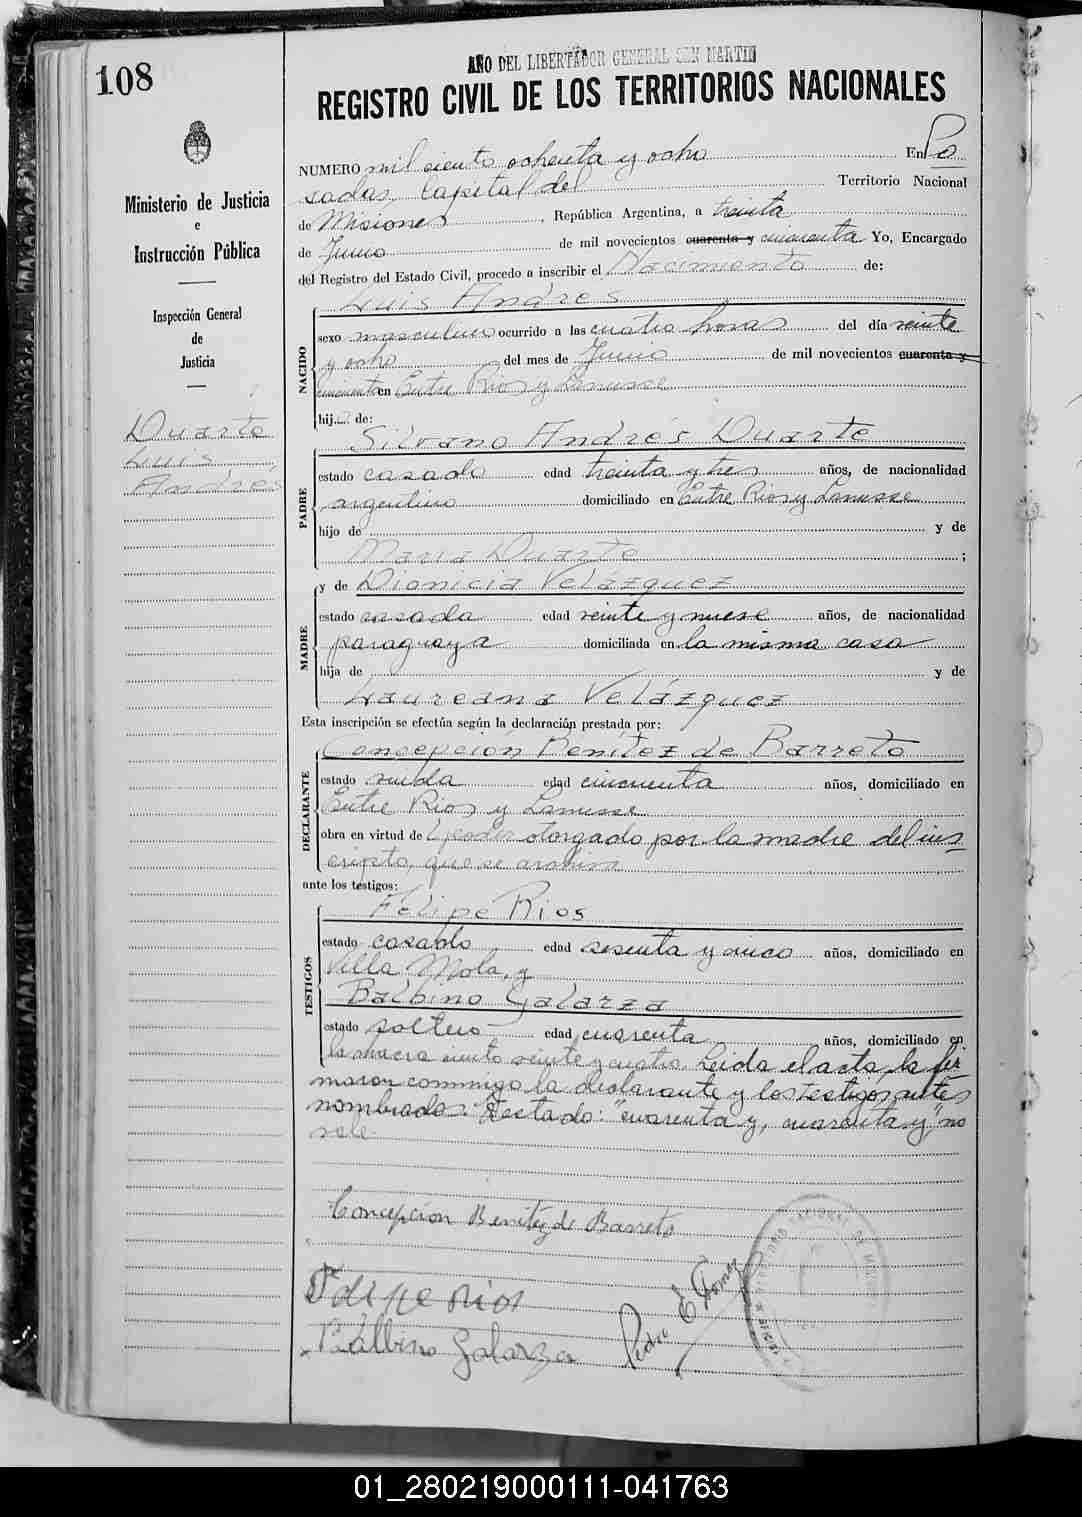 108
AÑO DEL LIBERTADOR GENERAL SAN MARTIN
REGISTRO CIVIL DE LOS TERRITORIOS NACIONALES
Ministerio de Justicia
e
Instrucción Pública
Inspección General
de
Justicia
Duarte
Luis
Andrés
NUMERO mil ciento ochenta y ocho En Po
sadas, Capital del Territorio Nacional
de Misiones, República Argentina, a treinta
de Junio de mil novecientos cuarenta y cincuenta Yo, Encargado
del Registro del Estado Civil, procedo a inscribir el Nacimiento de:
Luis Andres
NACIDO
sexo masculino ocurrido a las cuatro horas del día veinte
y ocho del mes de Junio de mil novecientos cuarenta y
cincuenta en Entre Rios y Lanusse
hijo de:
Silvano Andrés Duarte
PADRE
estado casado edad treinta y tres años, de nacionalidad
argentino domiciliado en Entre Rios y Lanusse
hijo de y de
Maria Duarte ;
y de Dionicia Velázquez
MADRE
estado casada edad veinte y nueve años, de nacionalidad
paraguaya domiciliada en la misma casa
hija de y de
Laureana Velázquez
Esta inscripción se efectúa según la declaración prestada por:
Concepción Benítez de Barreto
DECLARANTE
estado viuda edad cincuenta años, domiciliado en
Entre Rios y Lanusse
obra en virtud de poder otorgado por la madre del ins_
cripto, que se archiva
ante los testigos:
Felipe Rios
TESTIGOS
estado casado edad sesenta y cinco años, domiciliado en
Villa Mola, y
Balbino Galarza
estado soltero edad cuarenta años, domiciliado en
la chacra ciento veinte y cuatro. Leida el acta, la fir_
maron conmigo la declarante y los testigos antes
nombrados. Testado: "cuarenta y, cuarenta y", no
vale
Concepcion Benítez de Barreto
Felipe Rios
Pedro E Gomez
Balbino Galarza
01_280219000111-041763